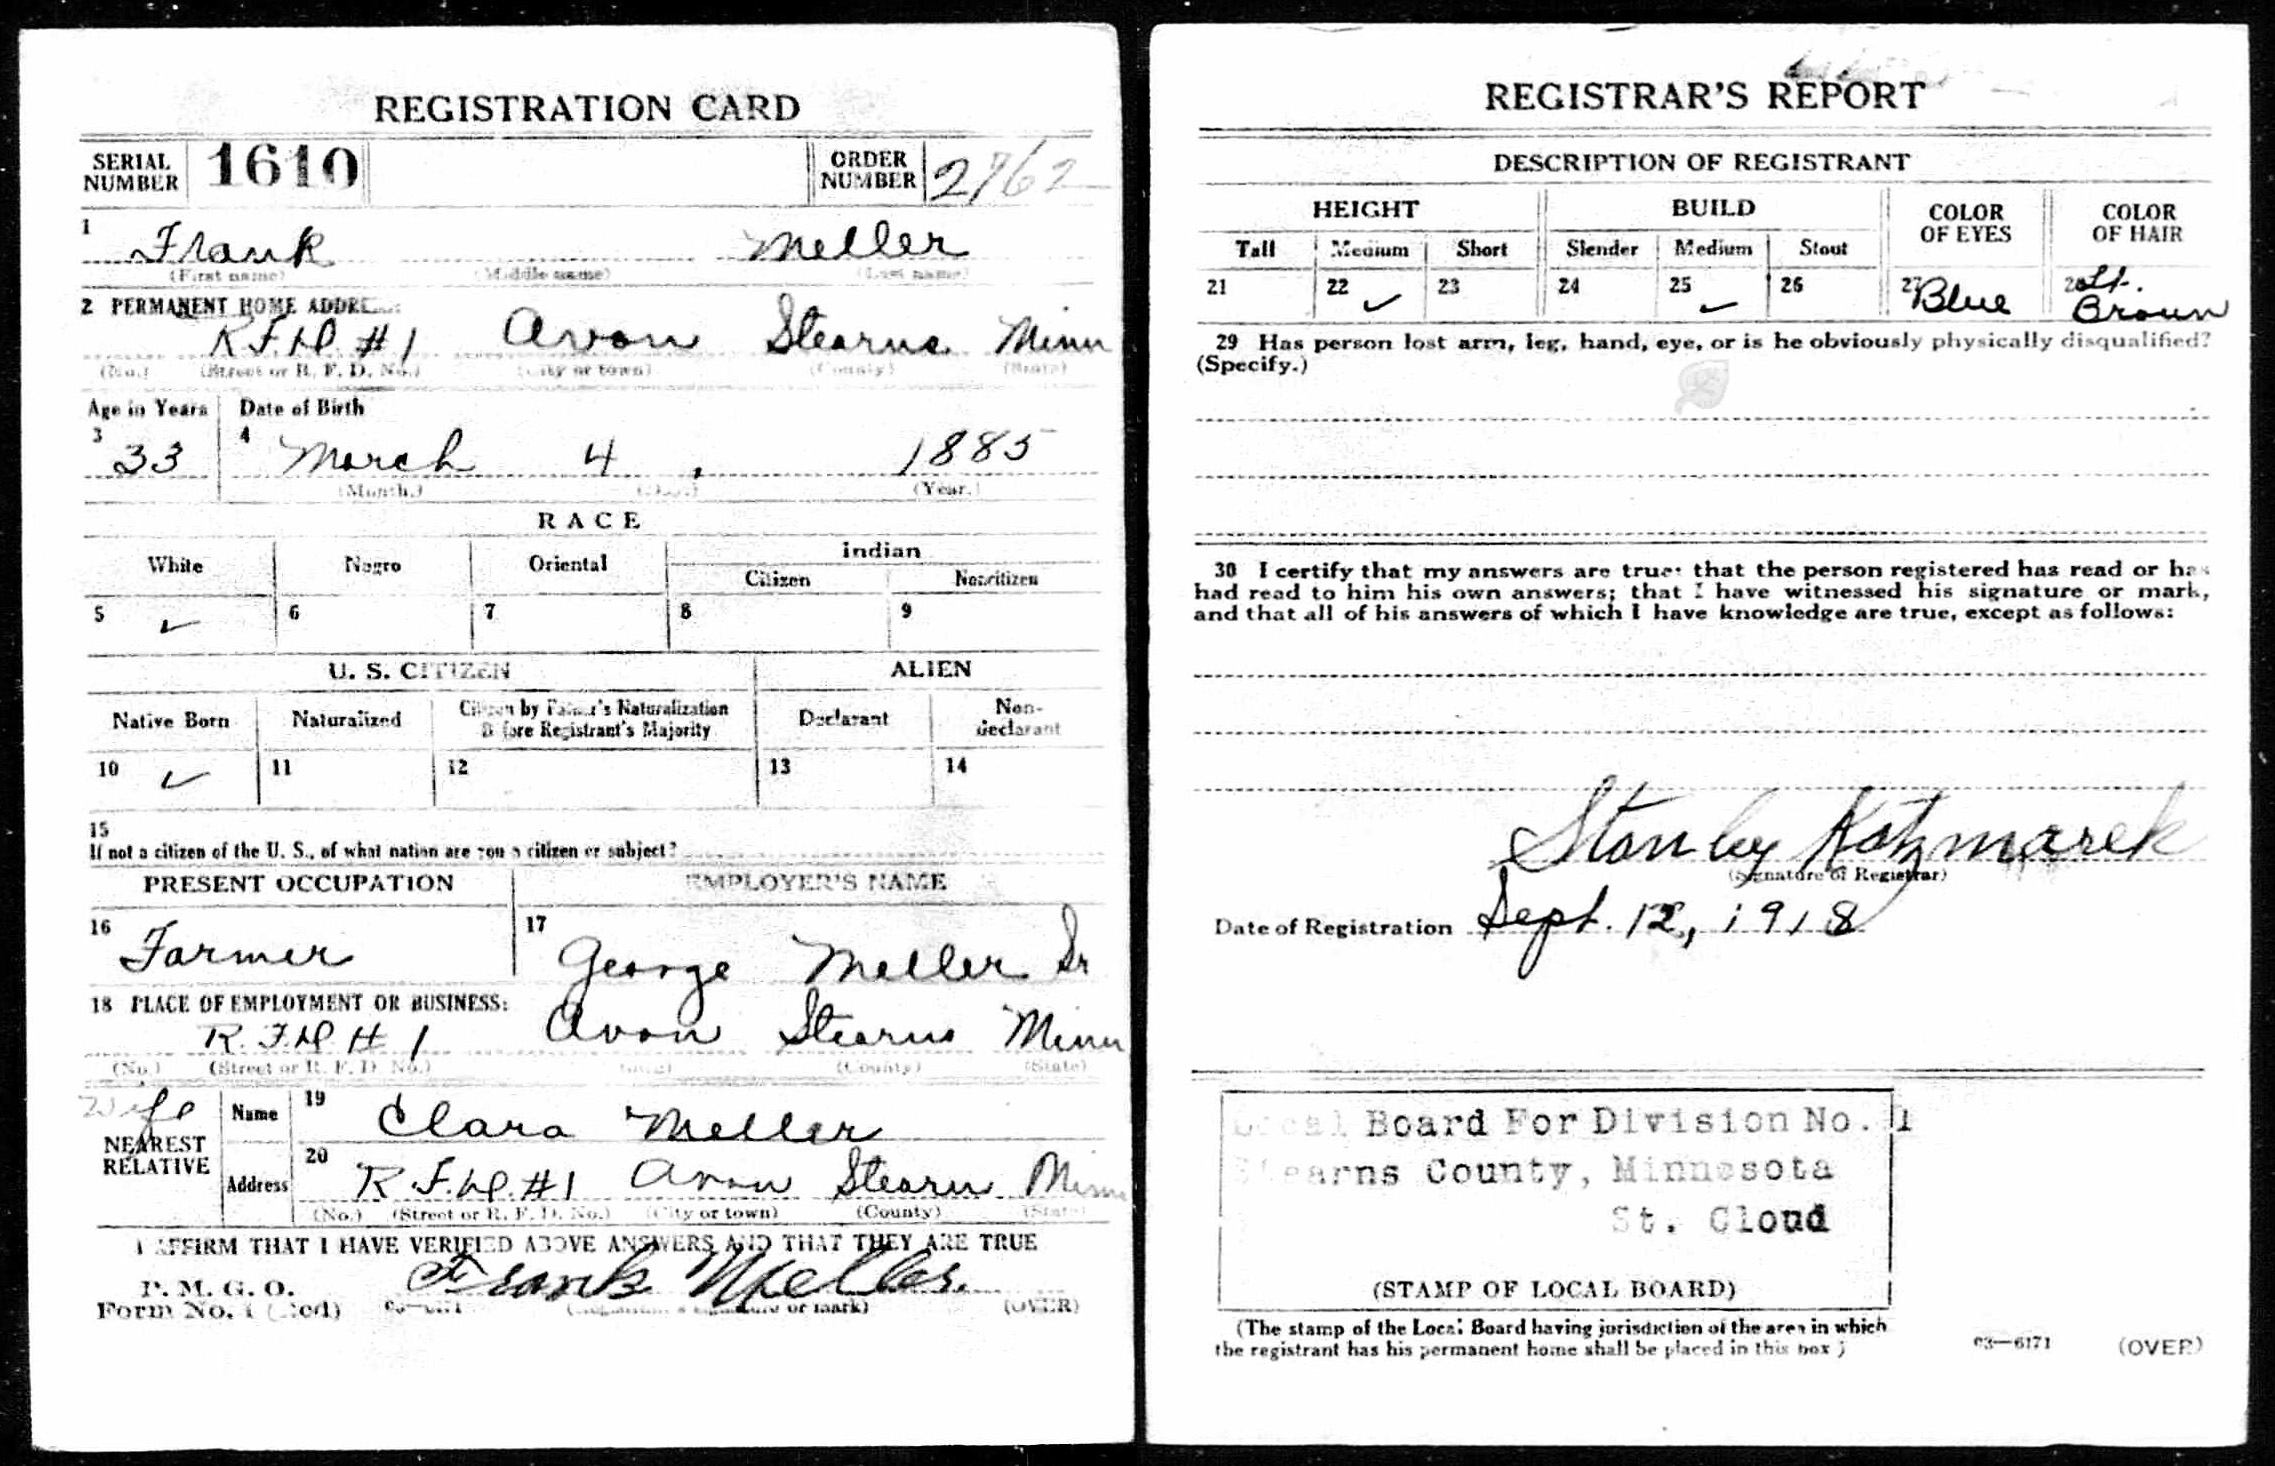 REGISTRATION CARD
SERIAL NUMBER 1610 ORDER NUMBER 2762
1 Frank Meller
(First name) (Middle name) (Last name)
2 PERMANENT HOME ADDRE
R.F.D. #1 Avon Stearns Minn
(No.) (Street or R. F. D. No.) (City or town) (County) (State)
Age in Years Date of Birth
3 33 4 March 4, 1885
(Month.) (Day.) (Year.)
RACE
White Negro Oriental Indian
Citizen Noncitizen
5 ✓ 6 7 8 9
U. S. CITIZEN ALIEN
Native Born Naturalized Citizen by Father's Naturalization Before Registrant's Majority Declarant Non-declarant
10 ✓ 11 12 13 14
15
If not a citizen of the U. S., of what nation are you a citizen or subject?
PRESENT OCCUPATION EMPLOYER'S NAME
16 Farmer 17 George Meller Sr
18 PLACE OF EMPLOYMENT OR BUSINESS:
R.F.D. # 1 Avon Stearns Minn
(No.) (Street or R. F. D. No.) (County) (State)
Wife
NEAREST RELATIVE
Name 19 Clara Meller
Address 20 R.F.D. #1 Avon Stearn Minn
(No.) (Street or R. F. D. No.) (City or town) (County) (State)
I AFFIRM THAT I HAVE VERIFIED ABOVE ANSWERS AND THAT THEY ARE TRUE
P. M. G. O.
Form No. 1 (Red) Frank Meller
or mark) (OVER)
REGISTRAR'S REPORT
DESCRIPTION OF REGISTRANT
HEIGHT BUILD COLOR OF EYES COLOR OF HAIR
Tall Medium Short Slender Medium Stout
21 22 ✓ 23 24 25 ✓ 26 27 Blue 28 Lt. Brown
29 Has person lost arm, leg, hand, eye, or is he obviously physically disqualified?
(Specify.)
30 I certify that my answers are true; that the person registered has read or has
had read to him his own answers; that I have witnessed his signature or mark,
and that all of his answers of which I have knowledge are true, except as follows:
Stanley Kotzmarek
(Signature of Registrar)
Date of Registration Sept. 12, 1918
Local Board For Division No. 1
Stearns County, Minnesota
St. Cloud
(STAMP OF LOCAL BOARD)
(The stamp of the Local Board having jurisdiction of the area in which
the registrant has his permanent home shall be placed in this box)
03—6171 (OVER)